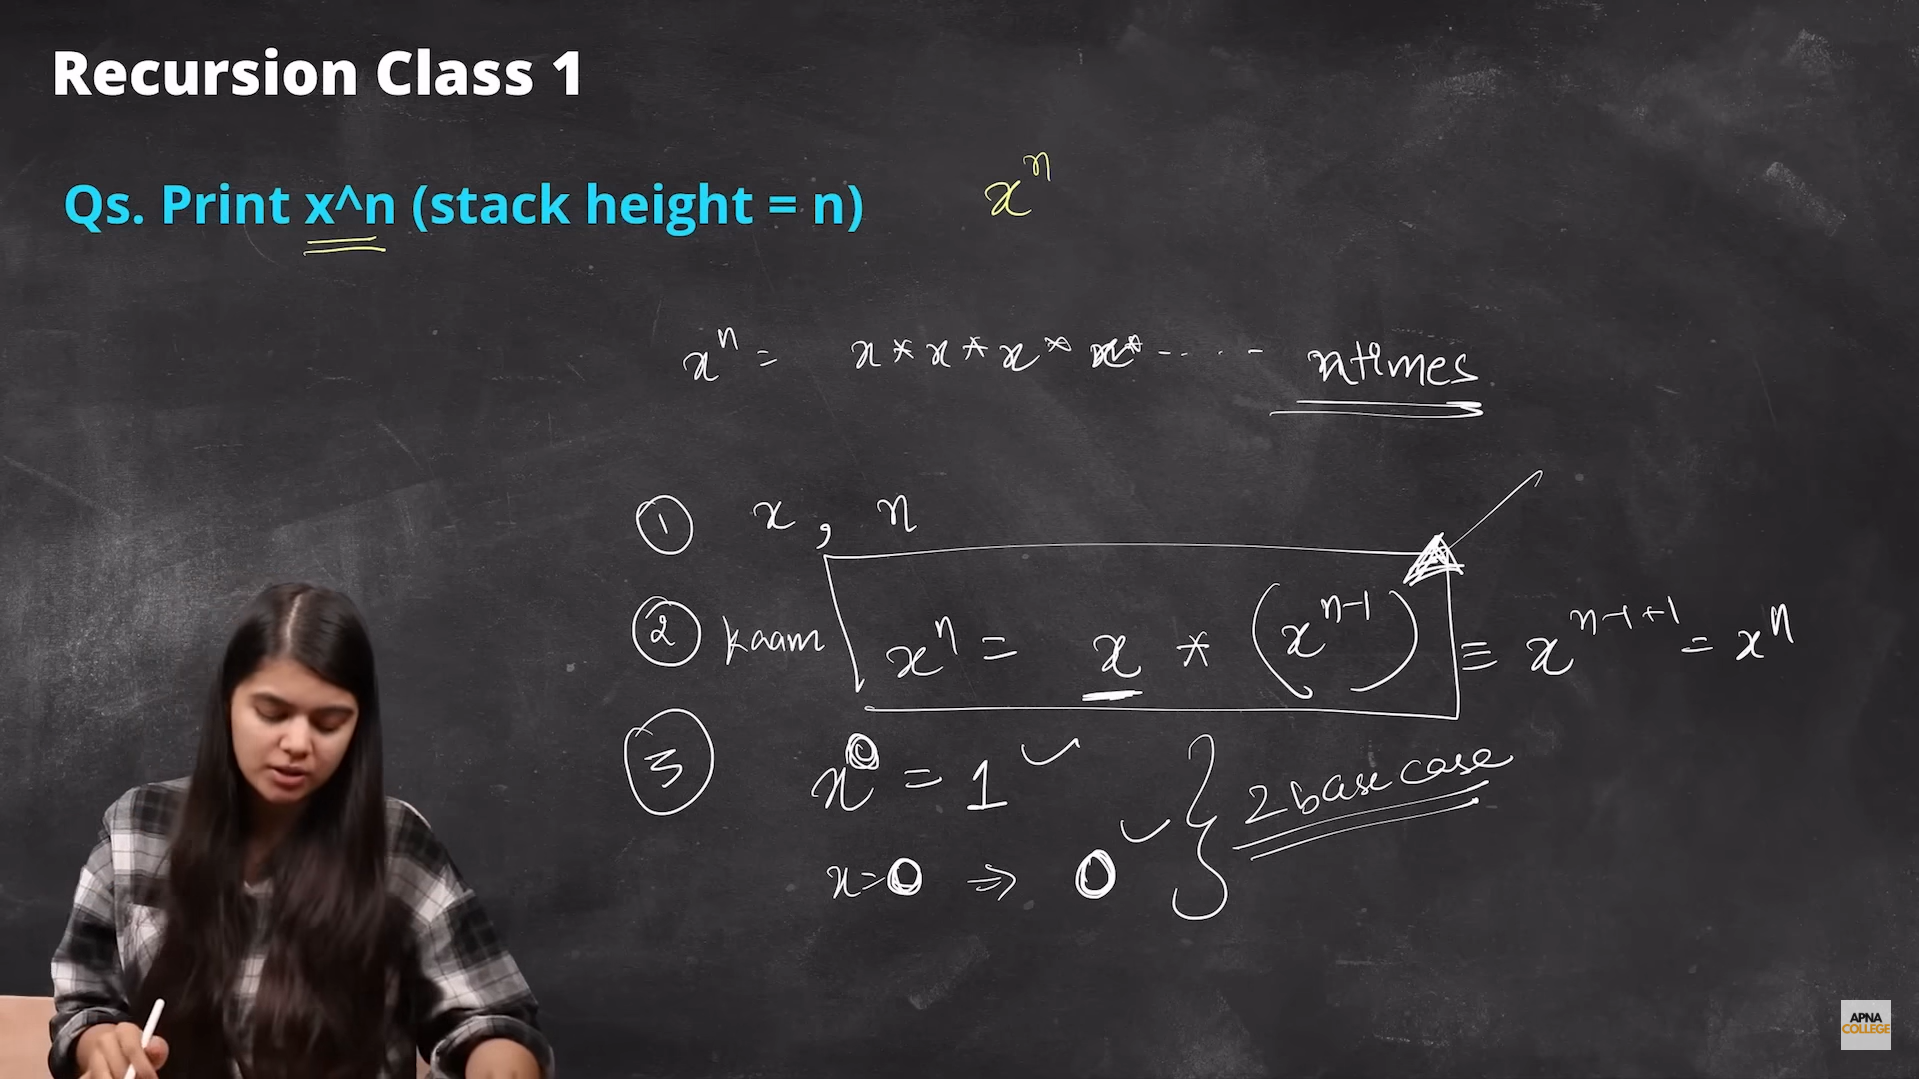 Recursion Class 1
Qs. Print x^n (stack height = n) xⁿ
xⁿ = x * x * x * x* - - - - - ntimes
① x , n
② kaam xⁿ = x * (xⁿ⁻¹) ≡ xⁿ⁻¹⁺¹ = xⁿ
③ x⁰ = 1 ✓
x=0 ⇒ 0 ✓ } 2 base case
APNA
COLLEGE